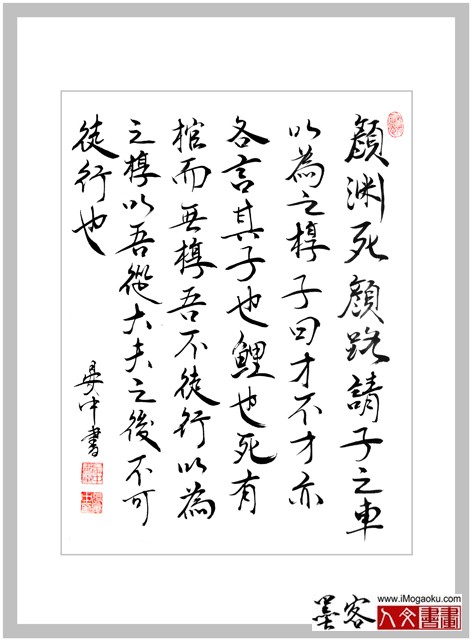 顏淵死顏路請子之車
以為之椁子曰才不才亦
各言其子也鯉也死有
棺而無椁吾不徒行以為
之椁以吾從大夫之後不可
徒行也
中書
www.iMogaoku.com
墨客
人文書畫